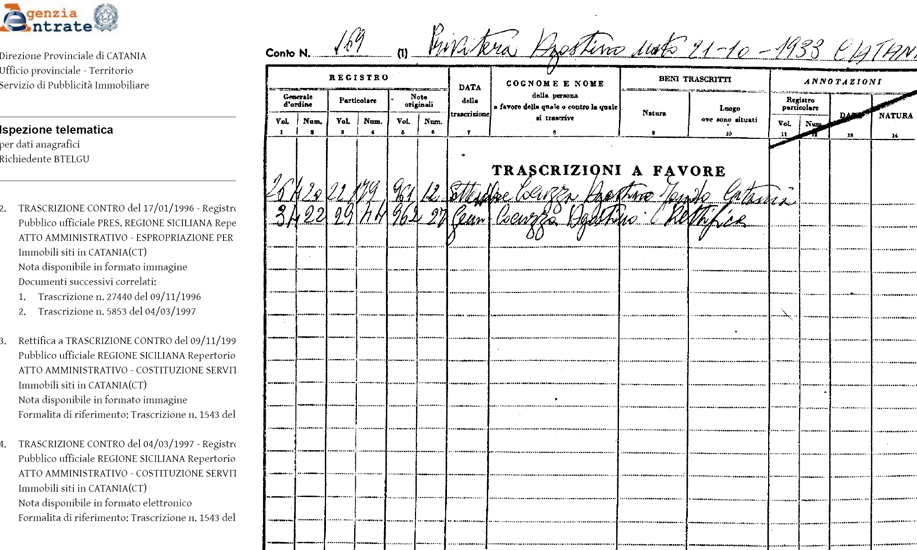 Agenzia
Entrate
Direzione Provinciale di CATANIA
Ufficio provinciale - Territorio
Servizio di Pubblicità Immobiliare
Ispezione telematica
per dati anagrafici
Richiedente BTELGU
2. TRASCRIZIONE CONTRO del 17/01/1996 - Registro
Pubblico ufficiale PRES. REGIONE SICILIANA Repe
ATTO AMMINISTRATIVO - ESPROPRIAZIONE PER
Immobili siti in CATANIA(CT)
Nota disponibile in formato immagine
Documenti successivi correlati:
1. Trascrizione n. 27440 del 09/11/1996
2. Trascrizione n. 5853 del 04/03/1997
3. Rettifica a TRASCRIZIONE CONTRO del 09/11/199
Pubblico ufficiale REGIONE SICILIANA Repertorio
ATTO AMMINISTRATIVO - COSTITUZIONE SERVIT
Immobili siti in CATANIA(CT)
Nota disponibile in formato immagine
Formalita di riferimento: Trascrizione n. 1543 del
4. TRASCRIZIONE CONTRO del 04/03/1997 - Registro
Pubblico ufficiale REGIONE SICILIANA Repertorio
ATTO AMMINISTRATIVO - COSTITUZIONE SERVIT
Immobili siti in CATANIA(CT)
Nota disponibile in formato elettronico
Formalita di riferimento: Trascrizione n. 1543 del
Conto N. 169 (1) Privitera Agostino nato 21-10-1933 CATANI
REGISTRO
Generale d'ordine
Particolare
Note originali
Vol. Num. Vol. Num. Vol. Num.
1 2 3 4 5 6
DATA
della
trascrizione
7
COGNOME E NOME
della persona
a favore della quale o contro la quale
si trascrive
8
BENI TRASCRITTI
Natura
9
Luogo
ove sono situati
10
ANNOTAZIONI
Registro
particolare
Vol. Num.
11 12
DATA
13
NATURA
14
TRASCRIZIONI A FAVORE
Agostino Catania
Agostino Rettifica